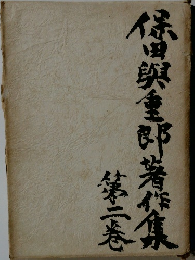 保田與重郎著作集
第二巻